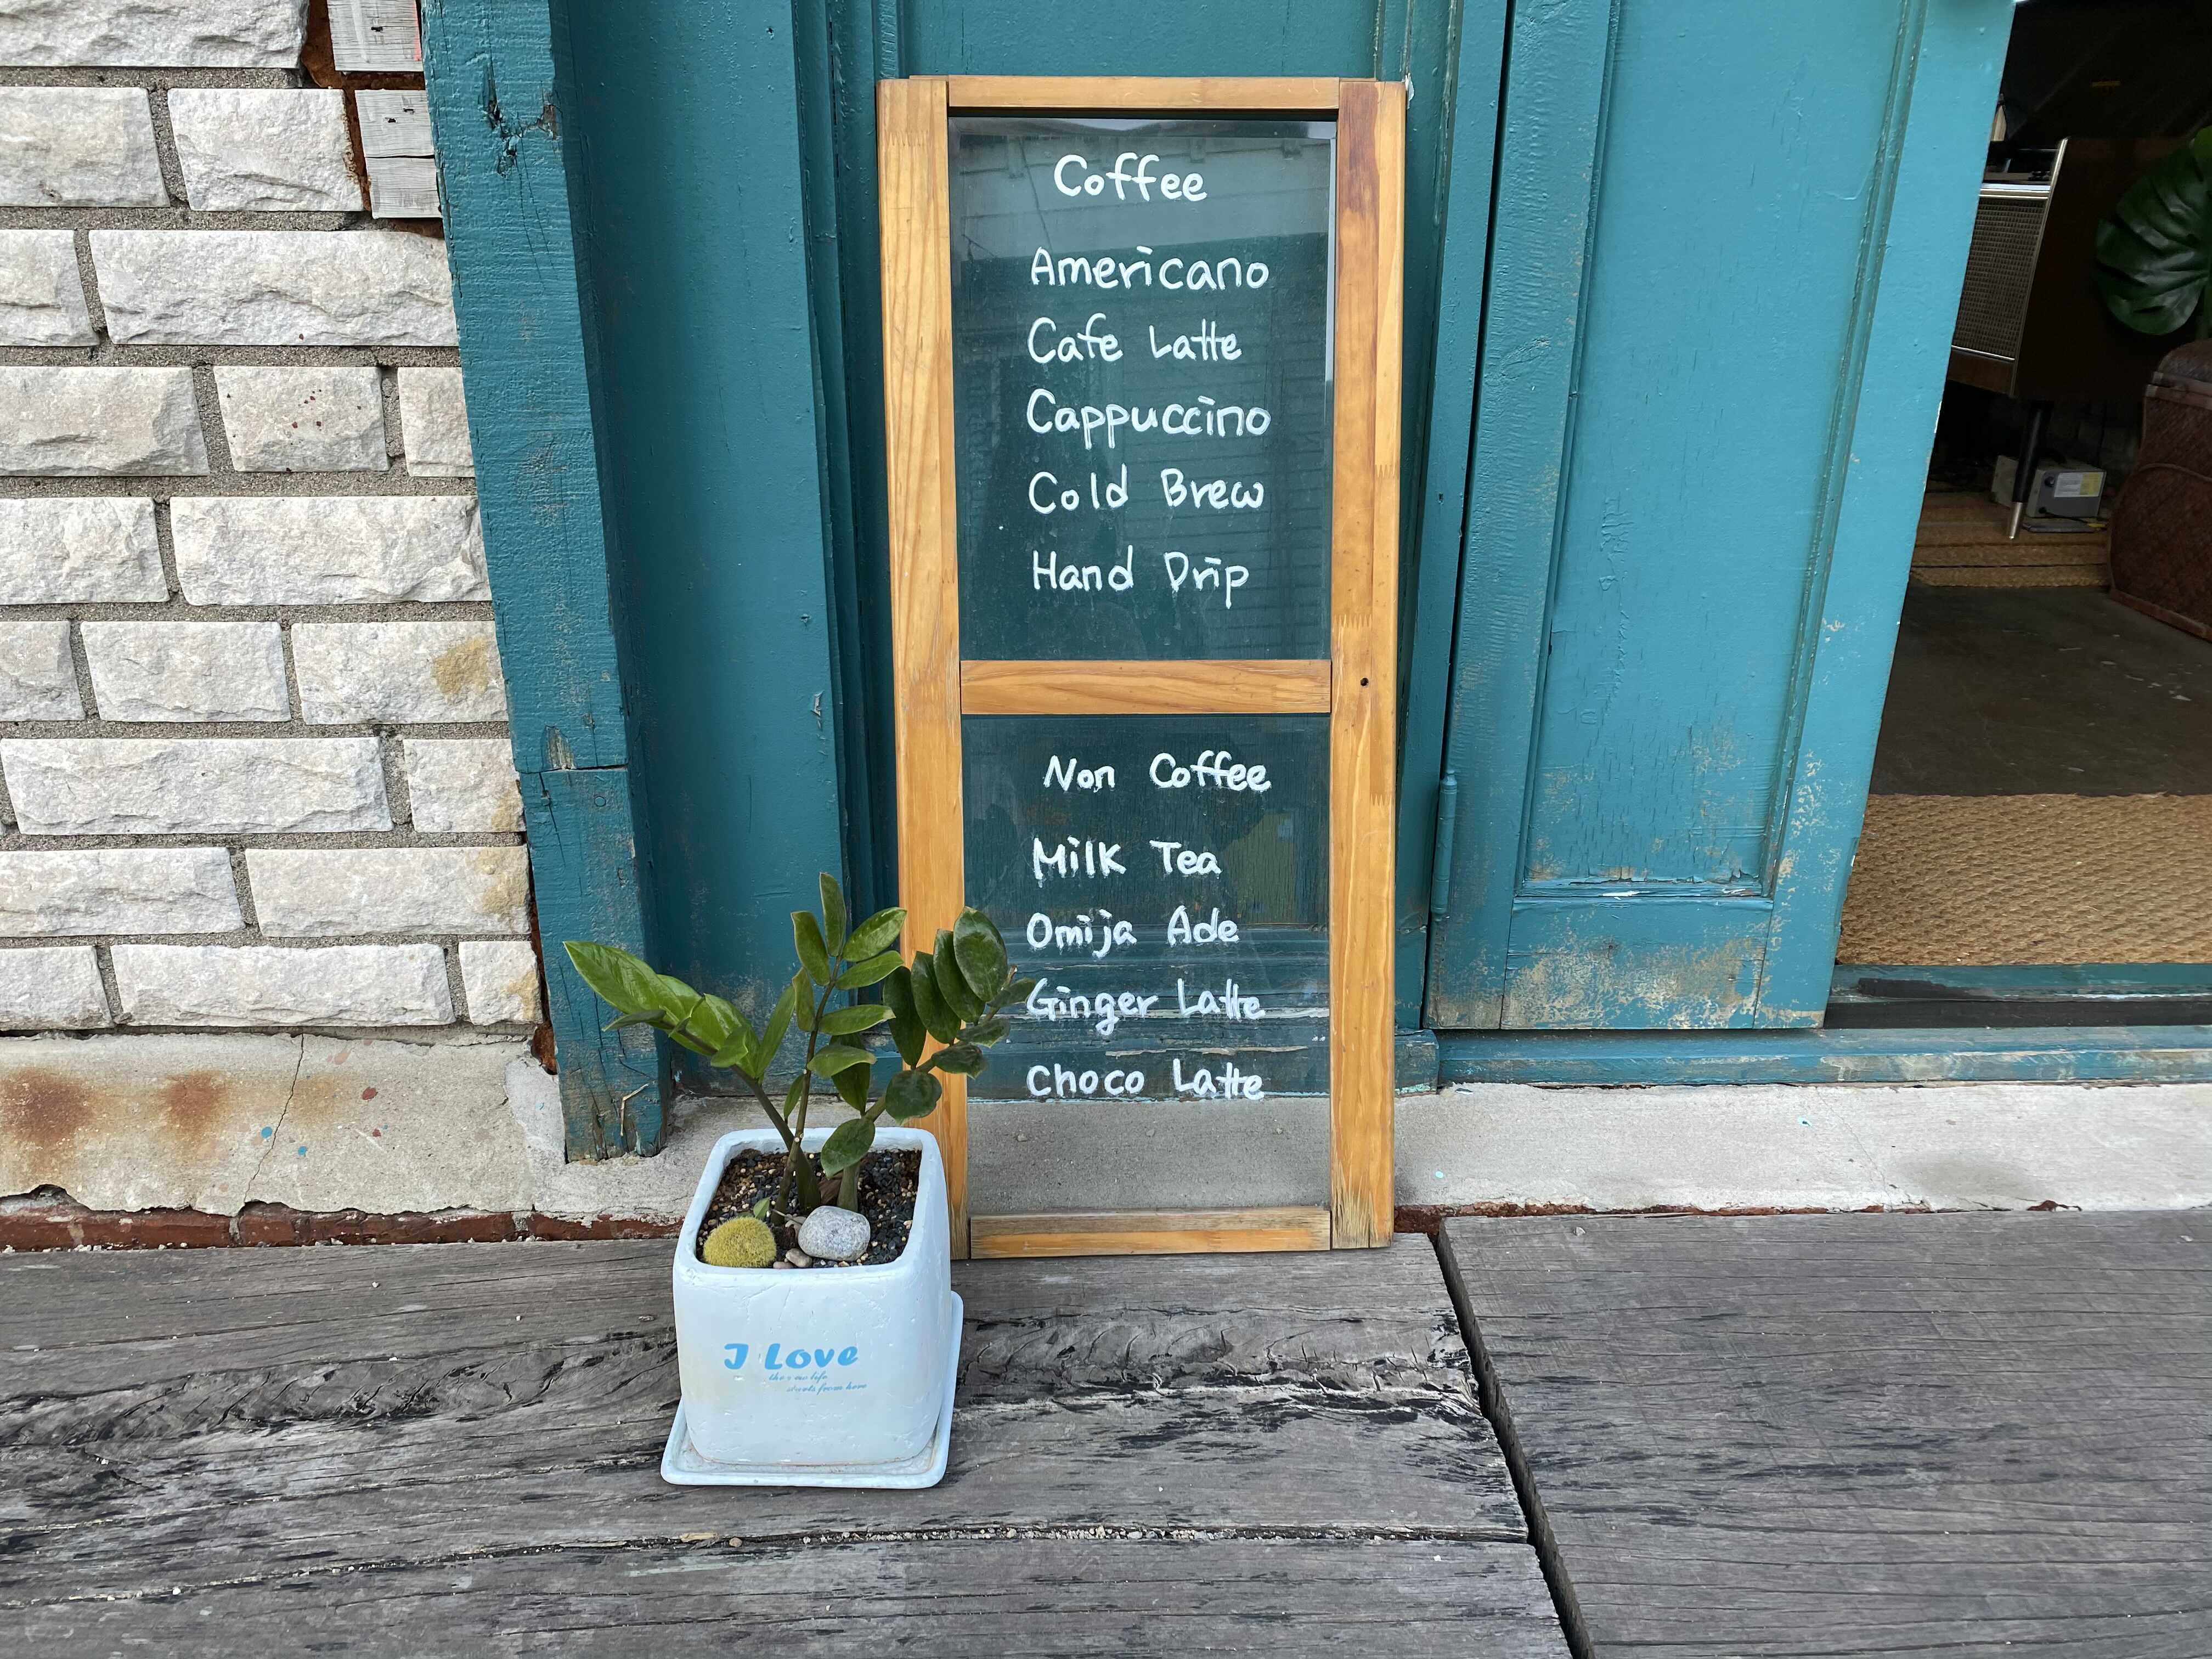 Coffee
Americano
Cafe Latte
Cappuccino
Cold Brew
Hand Drip
Non Coffee
Milk Tea
Omija Ade
Ginger Latte
Choco Latte
I Love
starts from here